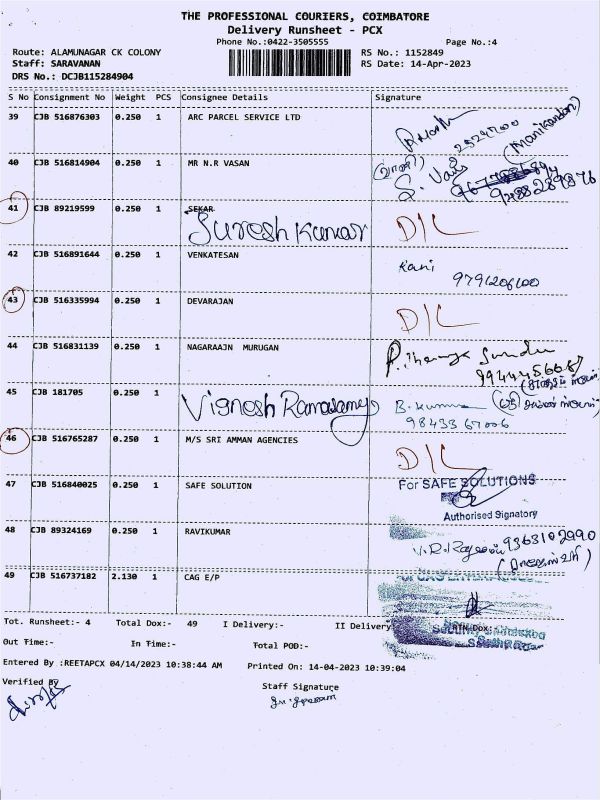 THE PROFESSIONAL COURIERS, COIMBATORE
Delivery Runsheet - PCX
Phone No.:0422-3505555 Page No.:4
Route: ALAMUNAGAR CK COLONY RS No.: 1152849
Staff: SARAVANAN RS Date: 14-Apr-2023
DRS No.: DCJB115284904
S No Consignment No Weight PCS Consignee Details Signature
39 CJB 516876303 0.250 1 ARC PARCEL SERVICE LTD
(Manikandan)
40 CJB 516814904 0.250 1 MR N.R VASAN
41 CJB 89219599 0.250 1 SEKAR D/L
Suresh Kumar
42 CJB 516891644 0.250 1 VENKATESAN Rani
9791206100
43 CJB 516335994 0.250 1 DEVARAJAN D/L
44 CJB 516831139 0.250 1 NAGARAAJN MURUGAN
9944456687
45 CJB 181705 0.250 1 Vignesh Ramasamy B. Kumar
9843367006
46 CJB 516765287 0.250 1 M/S SRI AMMAN AGENCIES D/L
47 CJB 516840025 0.250 1 SAFE SOLUTION For SAFE SOLUTIONS
Authorised Signatory
48 CJB 89324169 0.250 1 RAVIKUMAR 9363102990
49 CJB 516737182 2.130 1 CAG E/P
Tot. Runsheet:- 4 Total Dox:- 49 I Delivery:- II Delivery RTN Dox:
Out Time:- In Time:- Total POD:-
Entered By :REETAPCX 04/14/2023 10:38:44 AM Printed On: 14-04-2023 10:39:04
Verified By Staff Signature